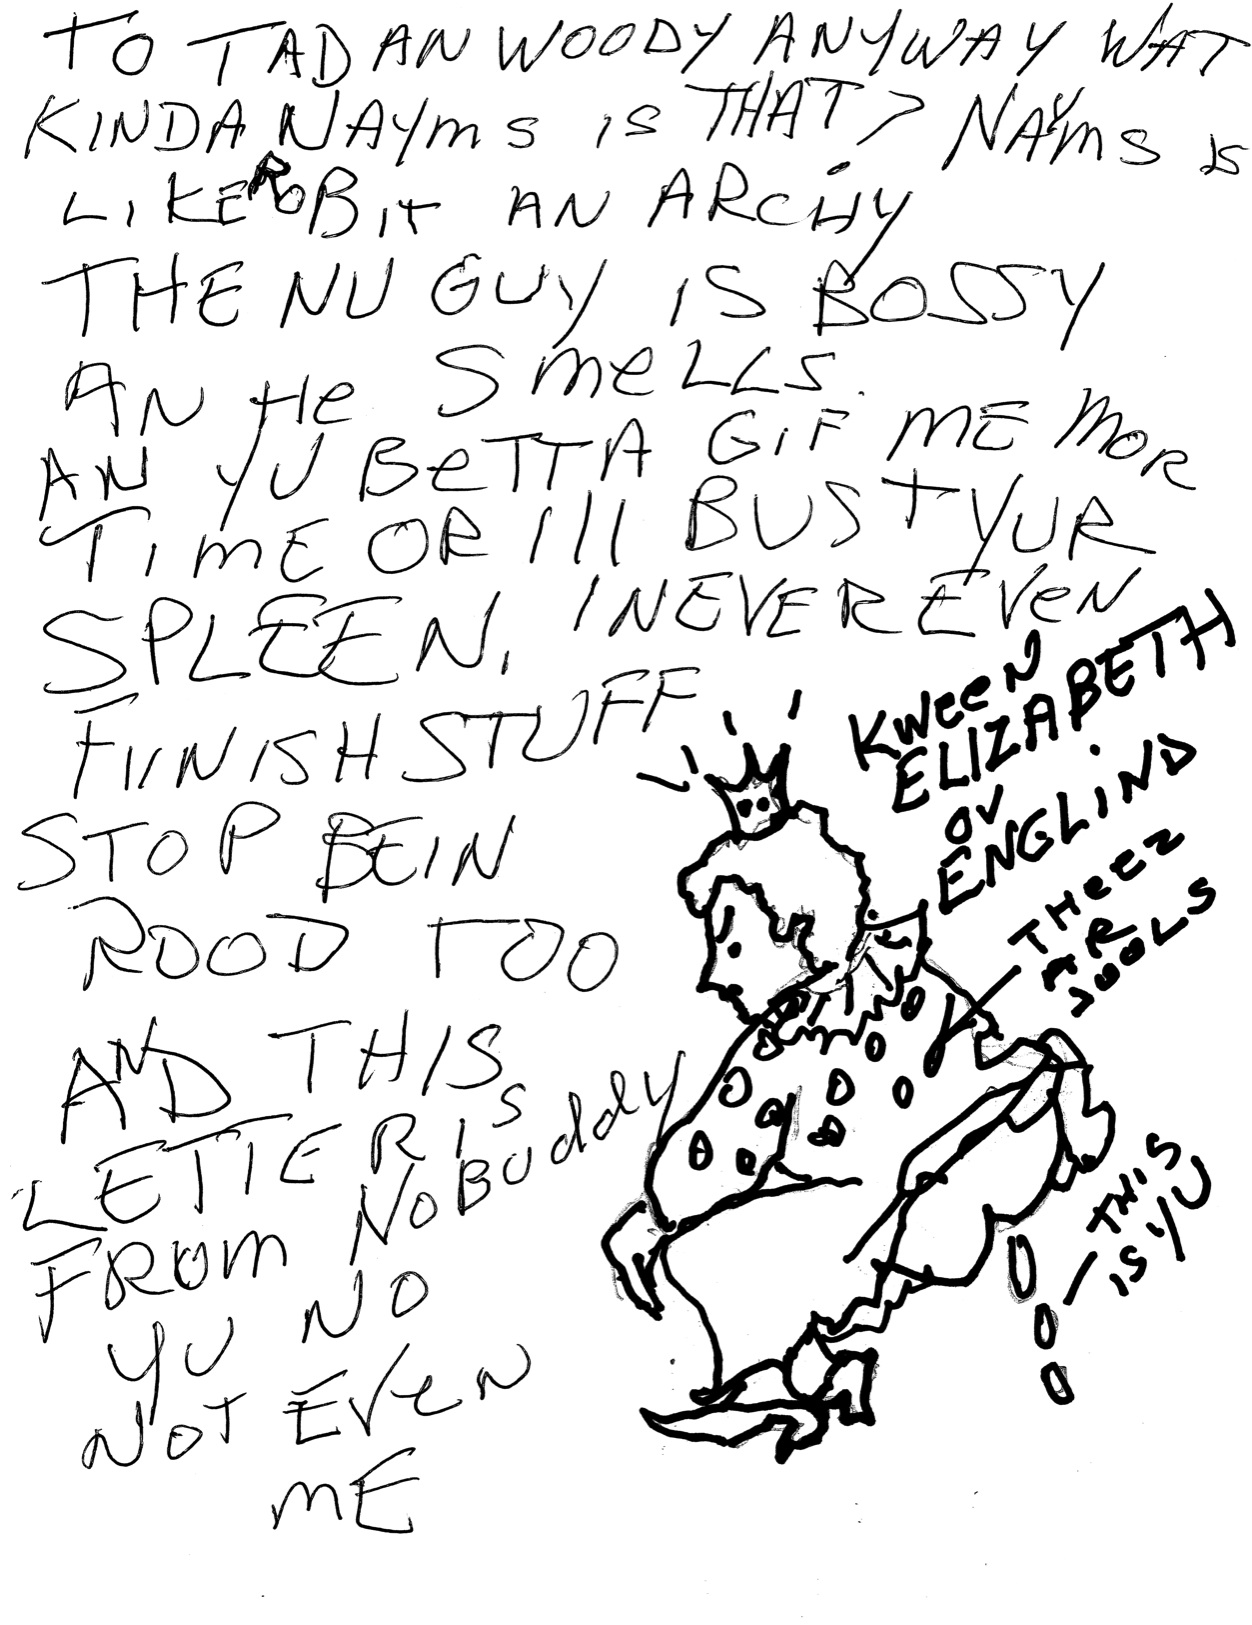 TO TAD AN WOODY ANYWAY WAT
KINDA NAYMS IS THAT? NAYMS IS
LIKE ROBIT AN ARCHY
THE NU GUY IS BOSSY
AN HE SMELLS.
AN YU BETTA GIF ME MOR
TIME OR ILL BUST YUR
SPLEEN. I NEVER EVEN
FINISH STUFF
STOP BEIN
ROOD TOO
AND THIS
LETTER IS
FROM NOBUDDY
YU NO
NOT EVEN
ME
KWEEN
ELIZABETH
OV
ENGLIND
THEEZ
AR
JOOLS
THIS
IS YU